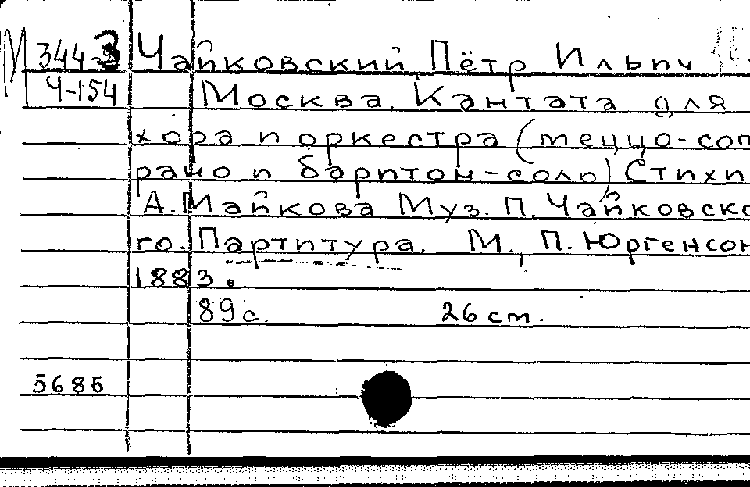 М 344-3 Чайковский, Пётр Ильич
Ч-154 Москва. Кантата для
хора и оркестра (меццо-соп
рано и баритон-соло) Стихи
А. Майкова Муз. П. Чайковско
го. Партитура. М., П. Юргенсон
1883.
89 с. 26 см.
5685